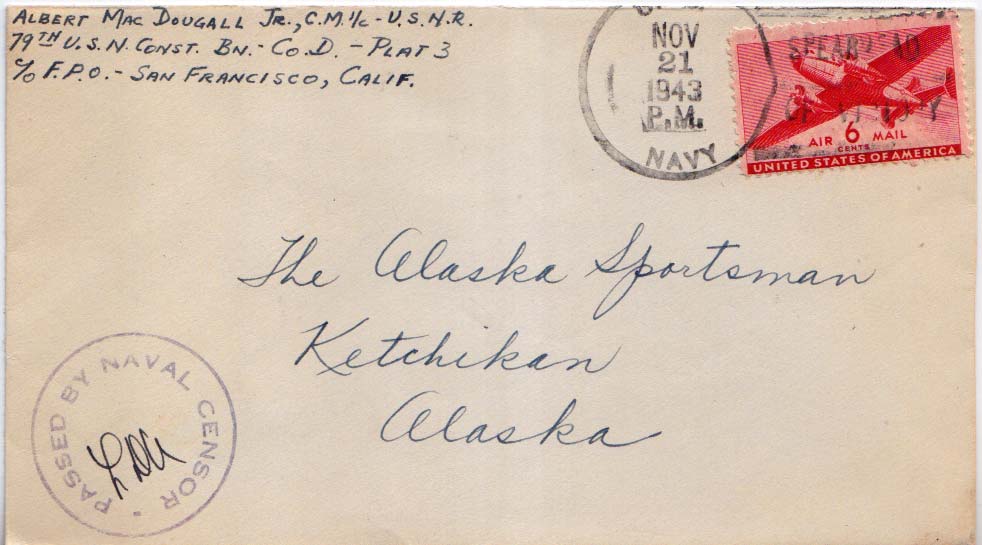 ALBERT MAC DOUGALL JR., C.M.1/c - U.S.N.R.
79TH U.S.N. CONST. BN. - CO. D. - PLAT 3
c/o F.P.O. - SAN FRANCISCO, CALIF.
NOV
21
1943
P.M.
NAVY
AIR 6 MAIL
CENTS
UNITED STATES OF AMERICA
The Alaska Sportsman
Ketchikan
Alaska
PASSED BY NAVAL CENSOR